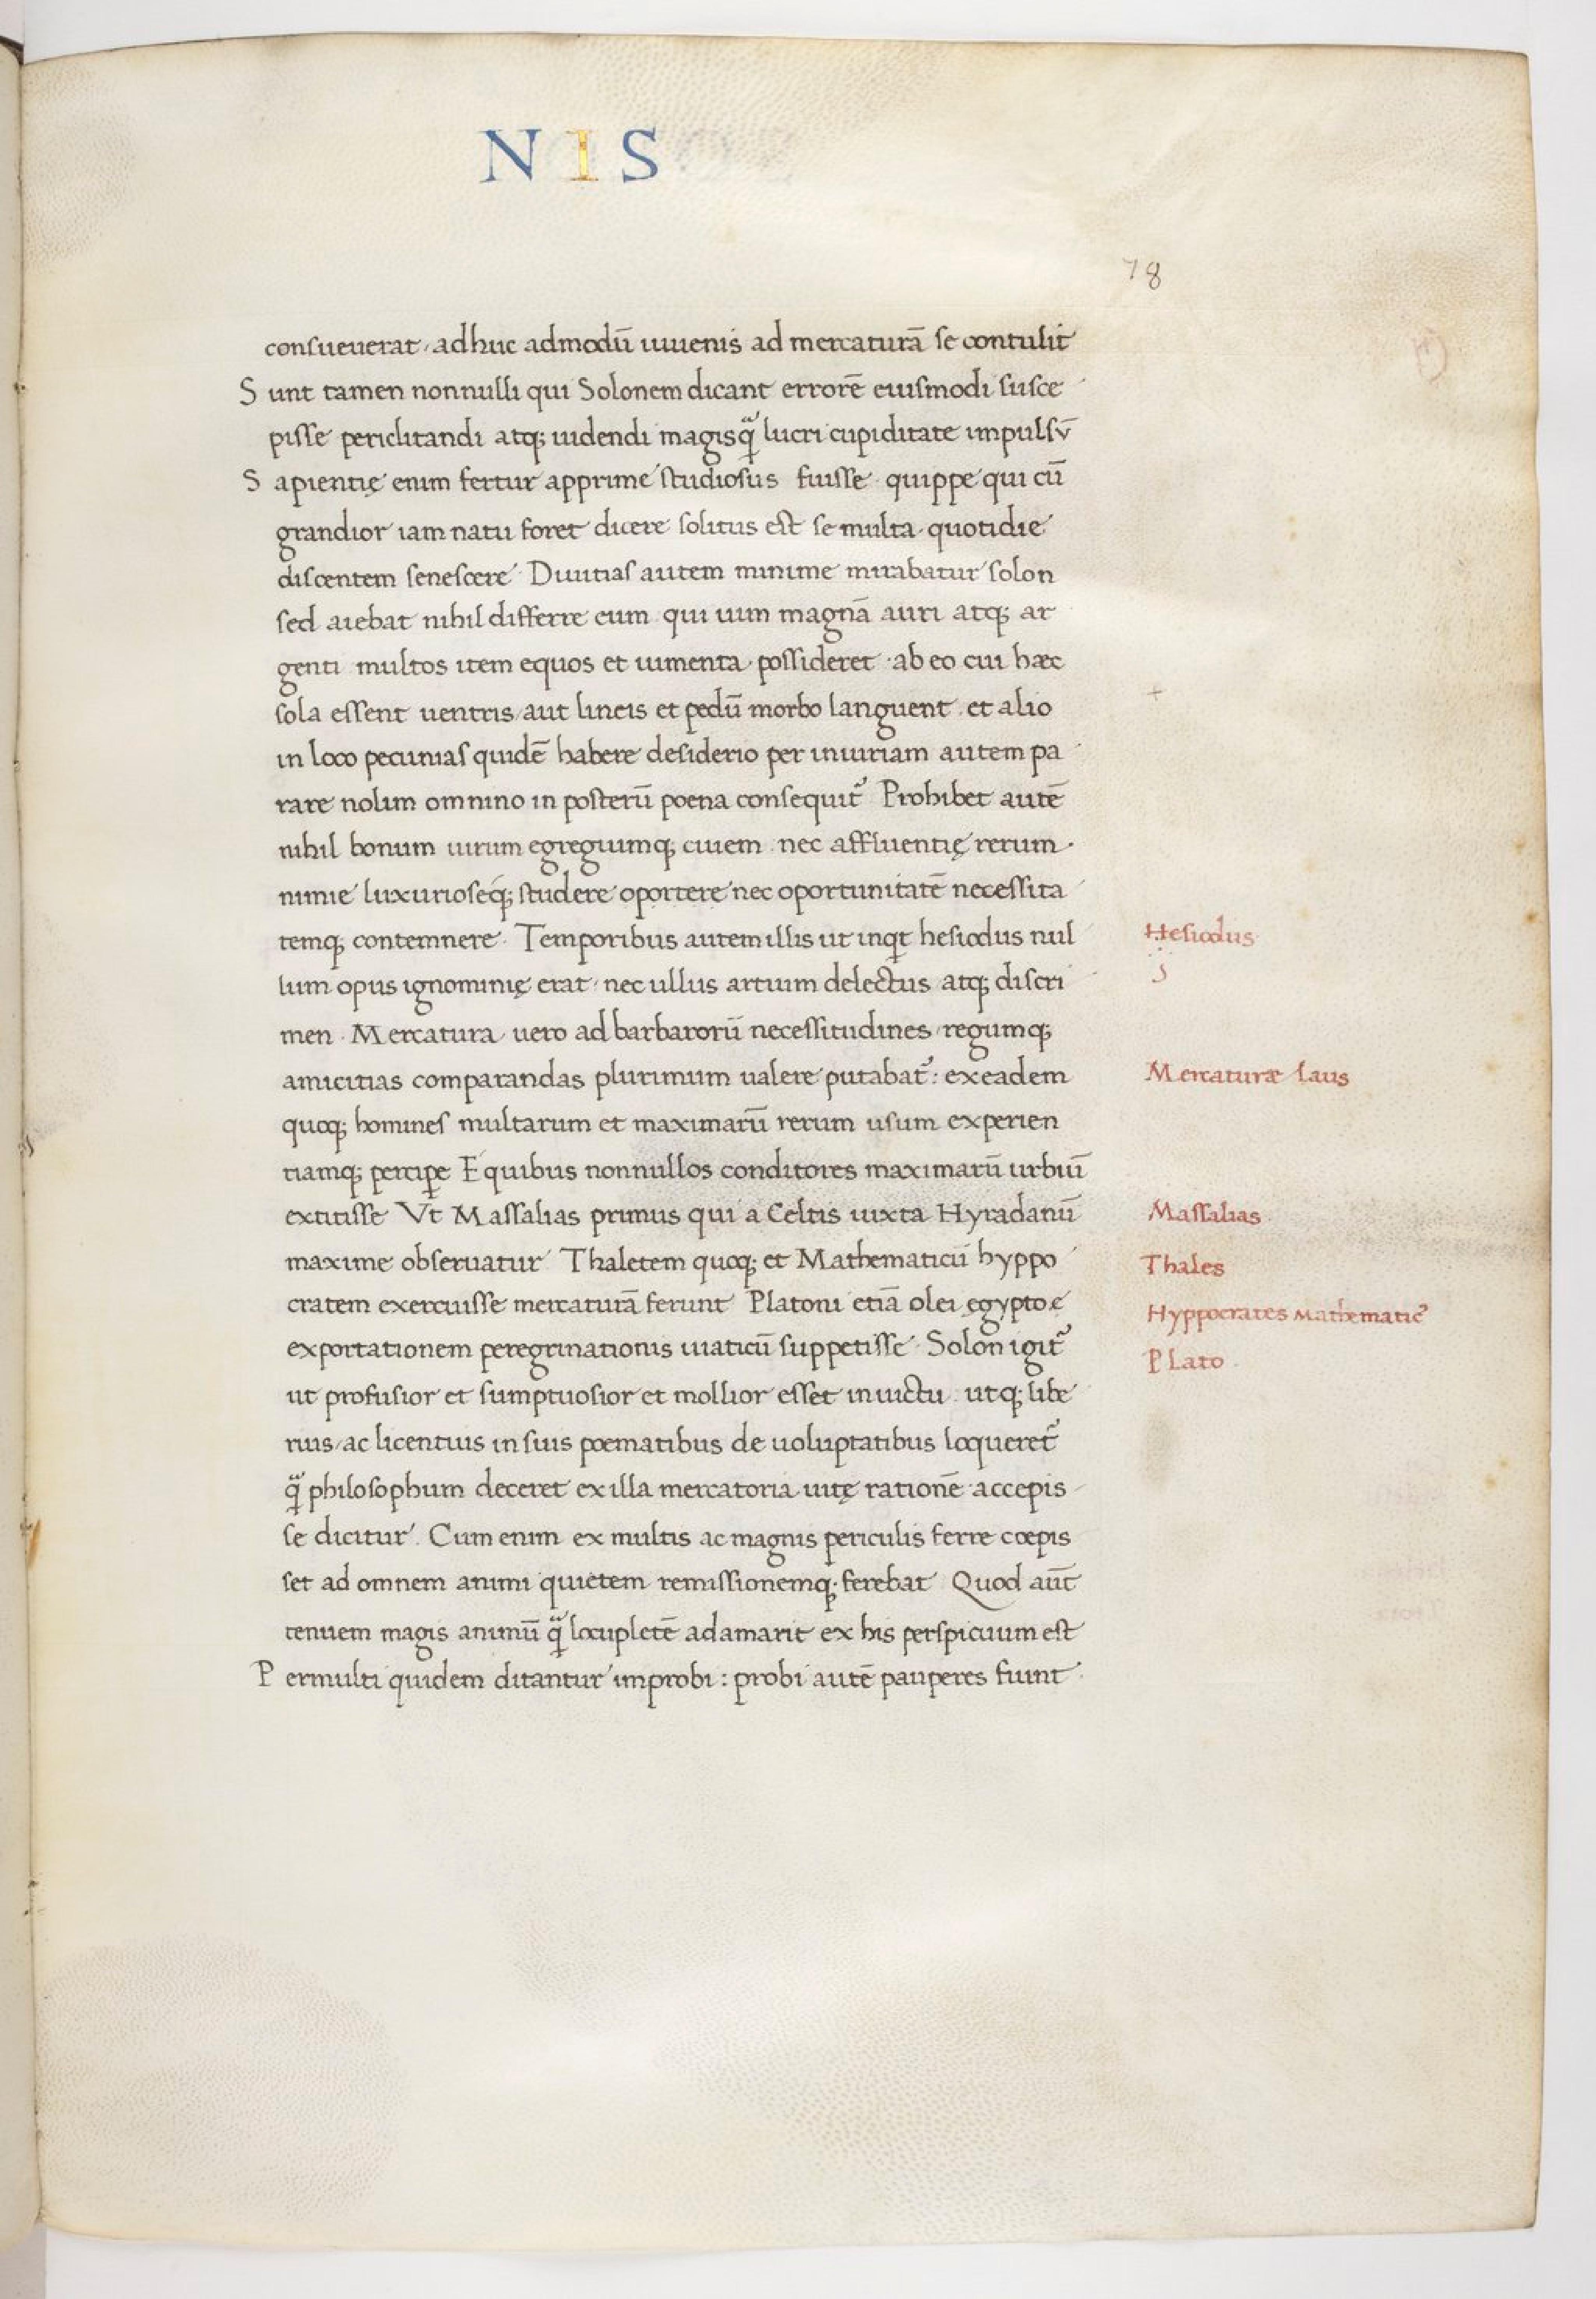 N I S
78
consueuerat · adhuc admodū iuuenis ad mercaturā se contulit
Sunt tamen nonnulli qui Solonem dicant errorē eiusmodi susce
pisse periclitandi atq; uidendi magisq̄ lucri cupiditate impulsū
Sapientię enim fertur apprime studiosus fuisse · quippe qui cū
grandior iam natu foret dicere solitus est se multa quotidie
discentem senescere · Diuitias autem minime mirabatur solon
sed aiebat nihil differre eum qui uim magnā auri atq; ar
genti multos item equos et iumenta possideret · ab eo cui hæc
sola essent uentris / aut lineis et pedū morbo languent · et alio
in loco pecunias quidē habere desiderio per iniuriam autem pa
rare nolim omnino in posterū poena consequit᷑ Prohibet autē
nihil bonum uirum egregiumq; ciuem · nec affluentię rerum ·
nimie luxurioseq; studere oportere nec oportunitatē necessita
temq; contemnere · Temporibus autem illis ut inqt hesiodus nul
Hesiodus
lum opus ignominię erat · nec ullus artium delectus atq; discri
men · Mercatura uero ad barbarorū necessitudines regumq;
amicitias comparandas plurimum ualere putabat᷑ : ex eadem
Mercaturæ laus
quoq; homines multarum et maximarū rerum usum experien
tiamq; percipe E quibus nonnullos conditores maximarū urbiū
extitisse Vt Massalias primus qui a Celtis iuxta Hyradanū
Massalias
maxime obseruatur Thaletem quoq; et Mathematicū hyppo
Thales
cratem exercuisse mercaturā ferunt Platoni etiā olei ęgypto e
Hyppocrates Mathematic᷒
exportationem peregrinationis uiaticū suppetisse · Solon igit᷑
Plato
ut profusior et sumptuosior et mollior esset in uictu · utq; libe
rius / ac licentius in suis poematibus de uoluptatibus loqueret᷑
q̄ philosophum deceret ex illa mercatoria uitę rationē accepis
se dicitur · Cum enim ex multis ac magnis periculis ferre cœpis
set ad omnem animi quietem remissionemq; ferebat Quod aūt
tenuem magis animū q̄ locupletē adamarit ex his perspicuum est
Permulti quidem ditantur improbi : probi autē pauperes fiunt